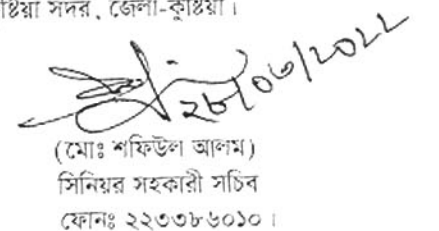 ষ্টিয়া সদর, জেলা-কুষ্টিয়া।
২৮/০৬/২০২২
(মোঃ শফিউল আলম)
সিনিয়র সহকারী সচিব
ফোনঃ ২২৩৩৮৬০১০।